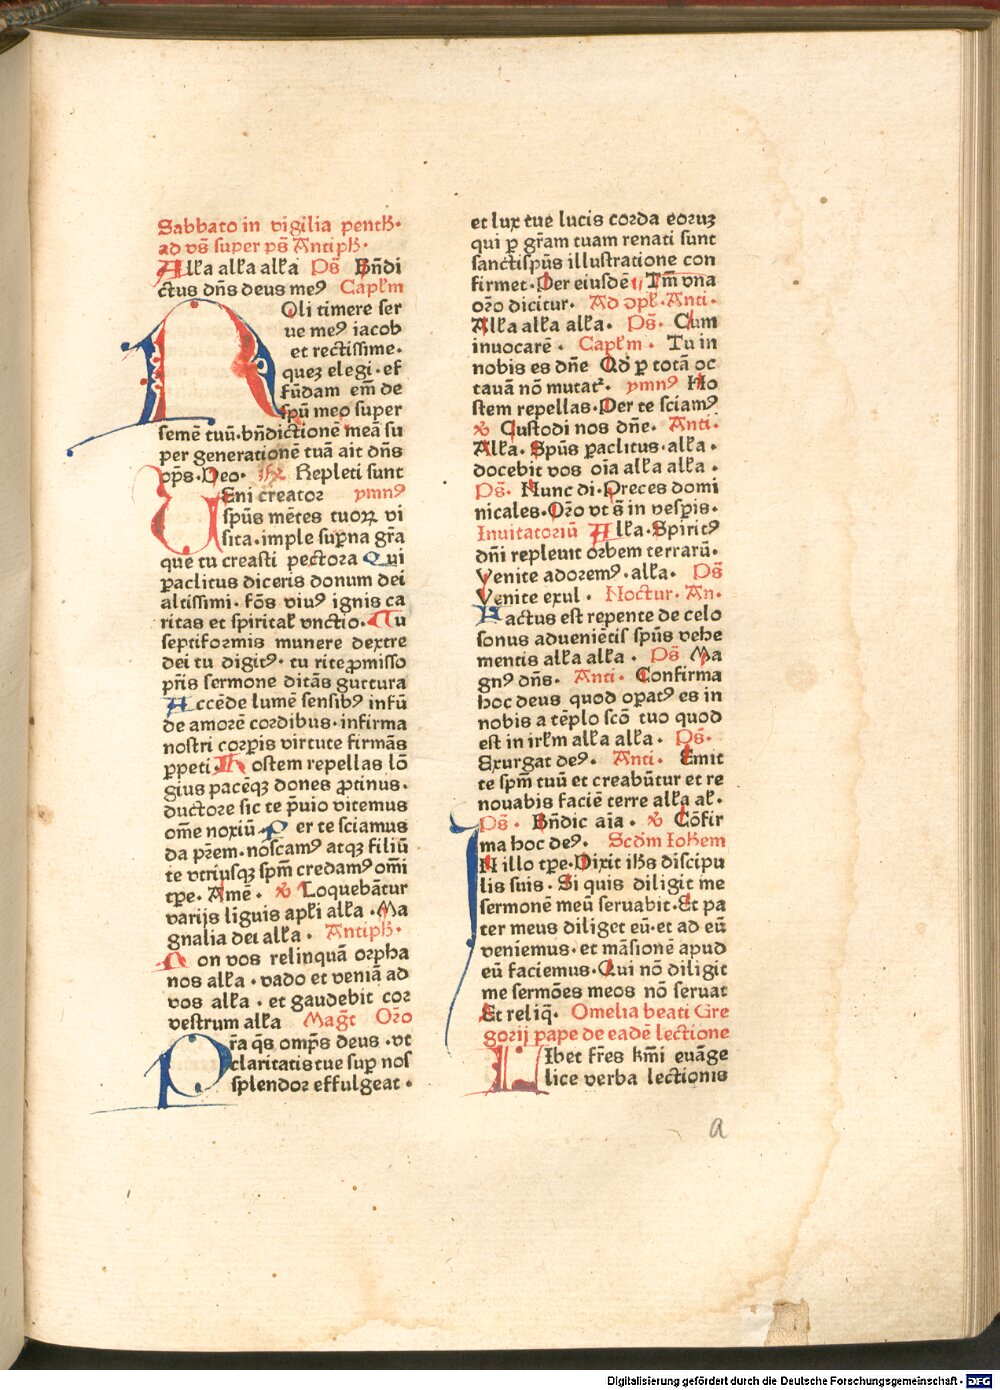 Sabbato in vigilia pentꝶ·
ad vs̄ super ps̄ Antipħ·
Alła alła alła Ps̄ Bn̄di
ctus dn̄s deus meꝰ Capłm
Noli timere ser
ue meꝰ iacob
et rectissime·
quez elegi· ef
fūdam em̄ de
spū meo super
semē tuū· bn̄dictionē meā su
per generationē tuā ait dn̄s
op̄s· Deo· Repleti sunt
Veni creator ymnꝰ
spūs mētes tuoꝝ vi
sita· imple sup̄na gr̄a
que tu creasti pectora Qui
ꝑaclitus diceris donum dei
altissimi· fōs viuꝰ ignis ca
ritas et spirital̵ vnctio· Tu
septiformis munere dextre
dei tu digitꝰ· tu rite ꝓmisso
pr̄is sermone ditās guttura
Accēde lumē sensibꝰ infū
de amorē cordibus· infirma
nostri corꝑis virtute firmās
ꝑpeti· Hostem repellas lō
gius pacēqꝫ dones ꝓtinus·
ductore sic te p̄uio vitemus
om̄e noxiū· Per te sciamus
da pr̄em· noscamꝰ atqꝫ filiū
te vtriusqꝫ spm̄ credamꝰ om̄i
tp̄e· Amē· ꝟ Loquebātur
varijs liguis apłi alła· Ma
gnalia dei alła· Antipħ·
Non vos relinquā orpha
nos alła· vado et veniā ad
vos alła· et gaudebit cor
vestrum alła Magt̄ Orō
Pr̄a qs̄ omp̄s deus· vt
claritatis tue suꝑ nos
splendor effulgeat·
et lux tue lucis corda eoruꝫ
qui ꝑ gr̄am tuam renati sunt
sanctispūs illustratione con
firmet· Per eiusdē Tm̄ vna
orō dicitur· Ad ꝯpł· Anti·
Alła alła alła· Ps̄· Cum
inuocarē· Capłm· Tu in
nobis es dn̄e Qd̄ ꝑ totā oc
tauā nō mutat᷑· ymnꝰ Ho
stem repellas· Per te sciamꝰ
ꝟ Custodi nos dn̄e· Anti·
Alła· Spūs ꝑaclitus· alła·
docebit vos oīa alła alła·
Ps̄· Nunc di· Preces domi
nicales· Orō vt s̄ in vesꝑis·
Inuitatoriū Alła· Spiritꝰ
dn̄i repleuit orbem terrarū·
Venite adoremꝰ· alła· Ps̄
Venite exul· Noctur· An·
Factus est repente de celo
sonus adueniētis spūs vehe
mentis alła alła· Ps̄ Ma
gnꝰ dn̄s· Anti· Confirma
hoc deus quod oꝑatꝰ es in
nobis a tēplo scō tuo quod
est in irłm alła alła· Ps̄·
Exurgat deꝰ· Anti· Emit
te spm̄ tuū et creabūtur et re
nouabis faciē terre alła ał·
Ps̄· Bn̄dic aīa· ꝟ Cōfir
ma hoc deꝰ· Scdm̄ Iohem
In illo tp̄e· Dixit ihs̄ discipu
lis suis· Si quis diligit me
sermonē meū seruabit· Et pa
ter meus diliget eū· et ad eū
veniemus· et māsionē apud
eū faciemus· Qui nō diligit
me sermōes meos nō seruat
Et reliq̄· Omelia beati Gre
gorij pape de eadē lectione
Libet fr̄es km̄i euāge
lice verba lectionis
a
Digitalisierung gefördert durch die Deutsche Forschungsgemeinschaft · DFG